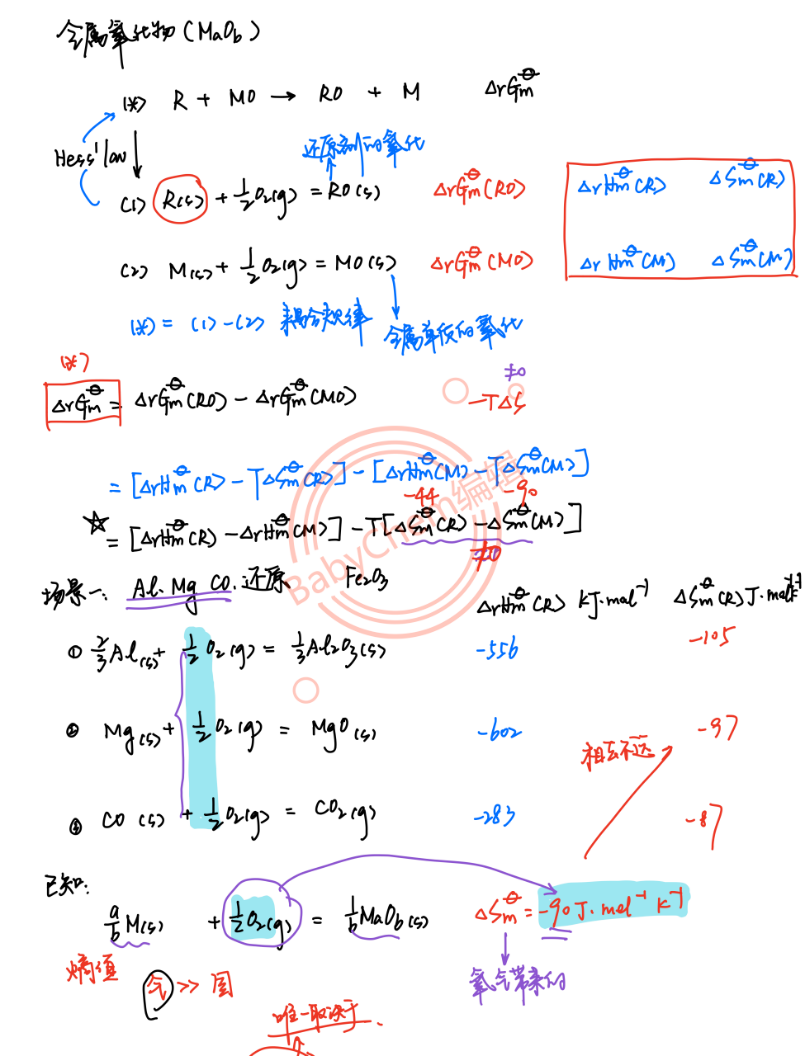 金属氧化物 (MaOb)
(*) R + MO → RO + M ΔrGm⊖
Hess' law
还原剂的氧化
(1) R(s) + 1/2 O2(g) = RO(s) ΔrGm⊖(RO) ΔrHm⊖(R) ΔSm⊖(R)
(2) M(s) + 1/2 O2(g) = MO(s) ΔrGm⊖(MO) ΔrHm⊖(M) ΔSm⊖(M)
(*) = (1) - (2) 耦合规律 金属单质的氧化
(*)
ΔrGm⊖ = ΔrGm⊖(RO) - ΔrGm⊖(MO) -TΔS ≠0
= [ΔrHm⊖(R) - TΔSm⊖(R)] - [ΔrHm⊖(M) - TΔSm⊖(M)]
-44 -90
☆ = [ΔrHm⊖(R) - ΔrHm⊖(M)] - T[ΔSm⊖(R) - ΔSm⊖(M)]
≠0
BabyChem编辑
场景一: Al. Mg CO. 还原 Fe2O3
ΔrHm⊖(R) kJ·mol⁻¹ ΔSm⊖(R) J·mol⁻¹k⁻¹
① 2/3 Al(s) + 1/2 O2(g) = 1/3 Al2O3(s) -556 -105
② Mg(s) + 1/2 O2(g) = MgO(s) -602 -97
相去不远
③ CO(s) + 1/2 O2(g) = CO2(g) -283 -87
已知:
a/b M(s) + 1/2 O2(g) = 1/b MaOb(s) ΔSm⊖ = -90 J·mol⁻¹ K⁻¹
熵值 气 >> 固 氧气带来的
唯一取决于